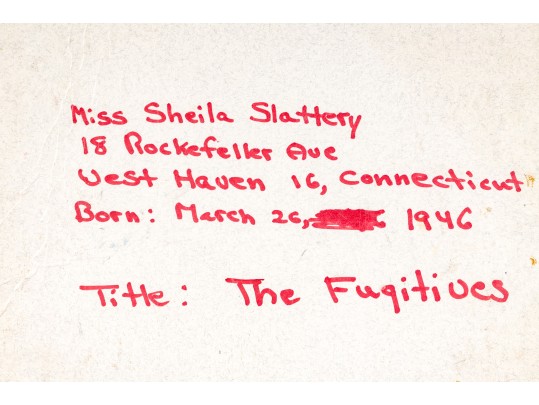 Miss Sheila Slattery
18 Rockefeller Ave
West Haven 16, Connecticut
Born: March 26, 1946
Title: The Fugitives